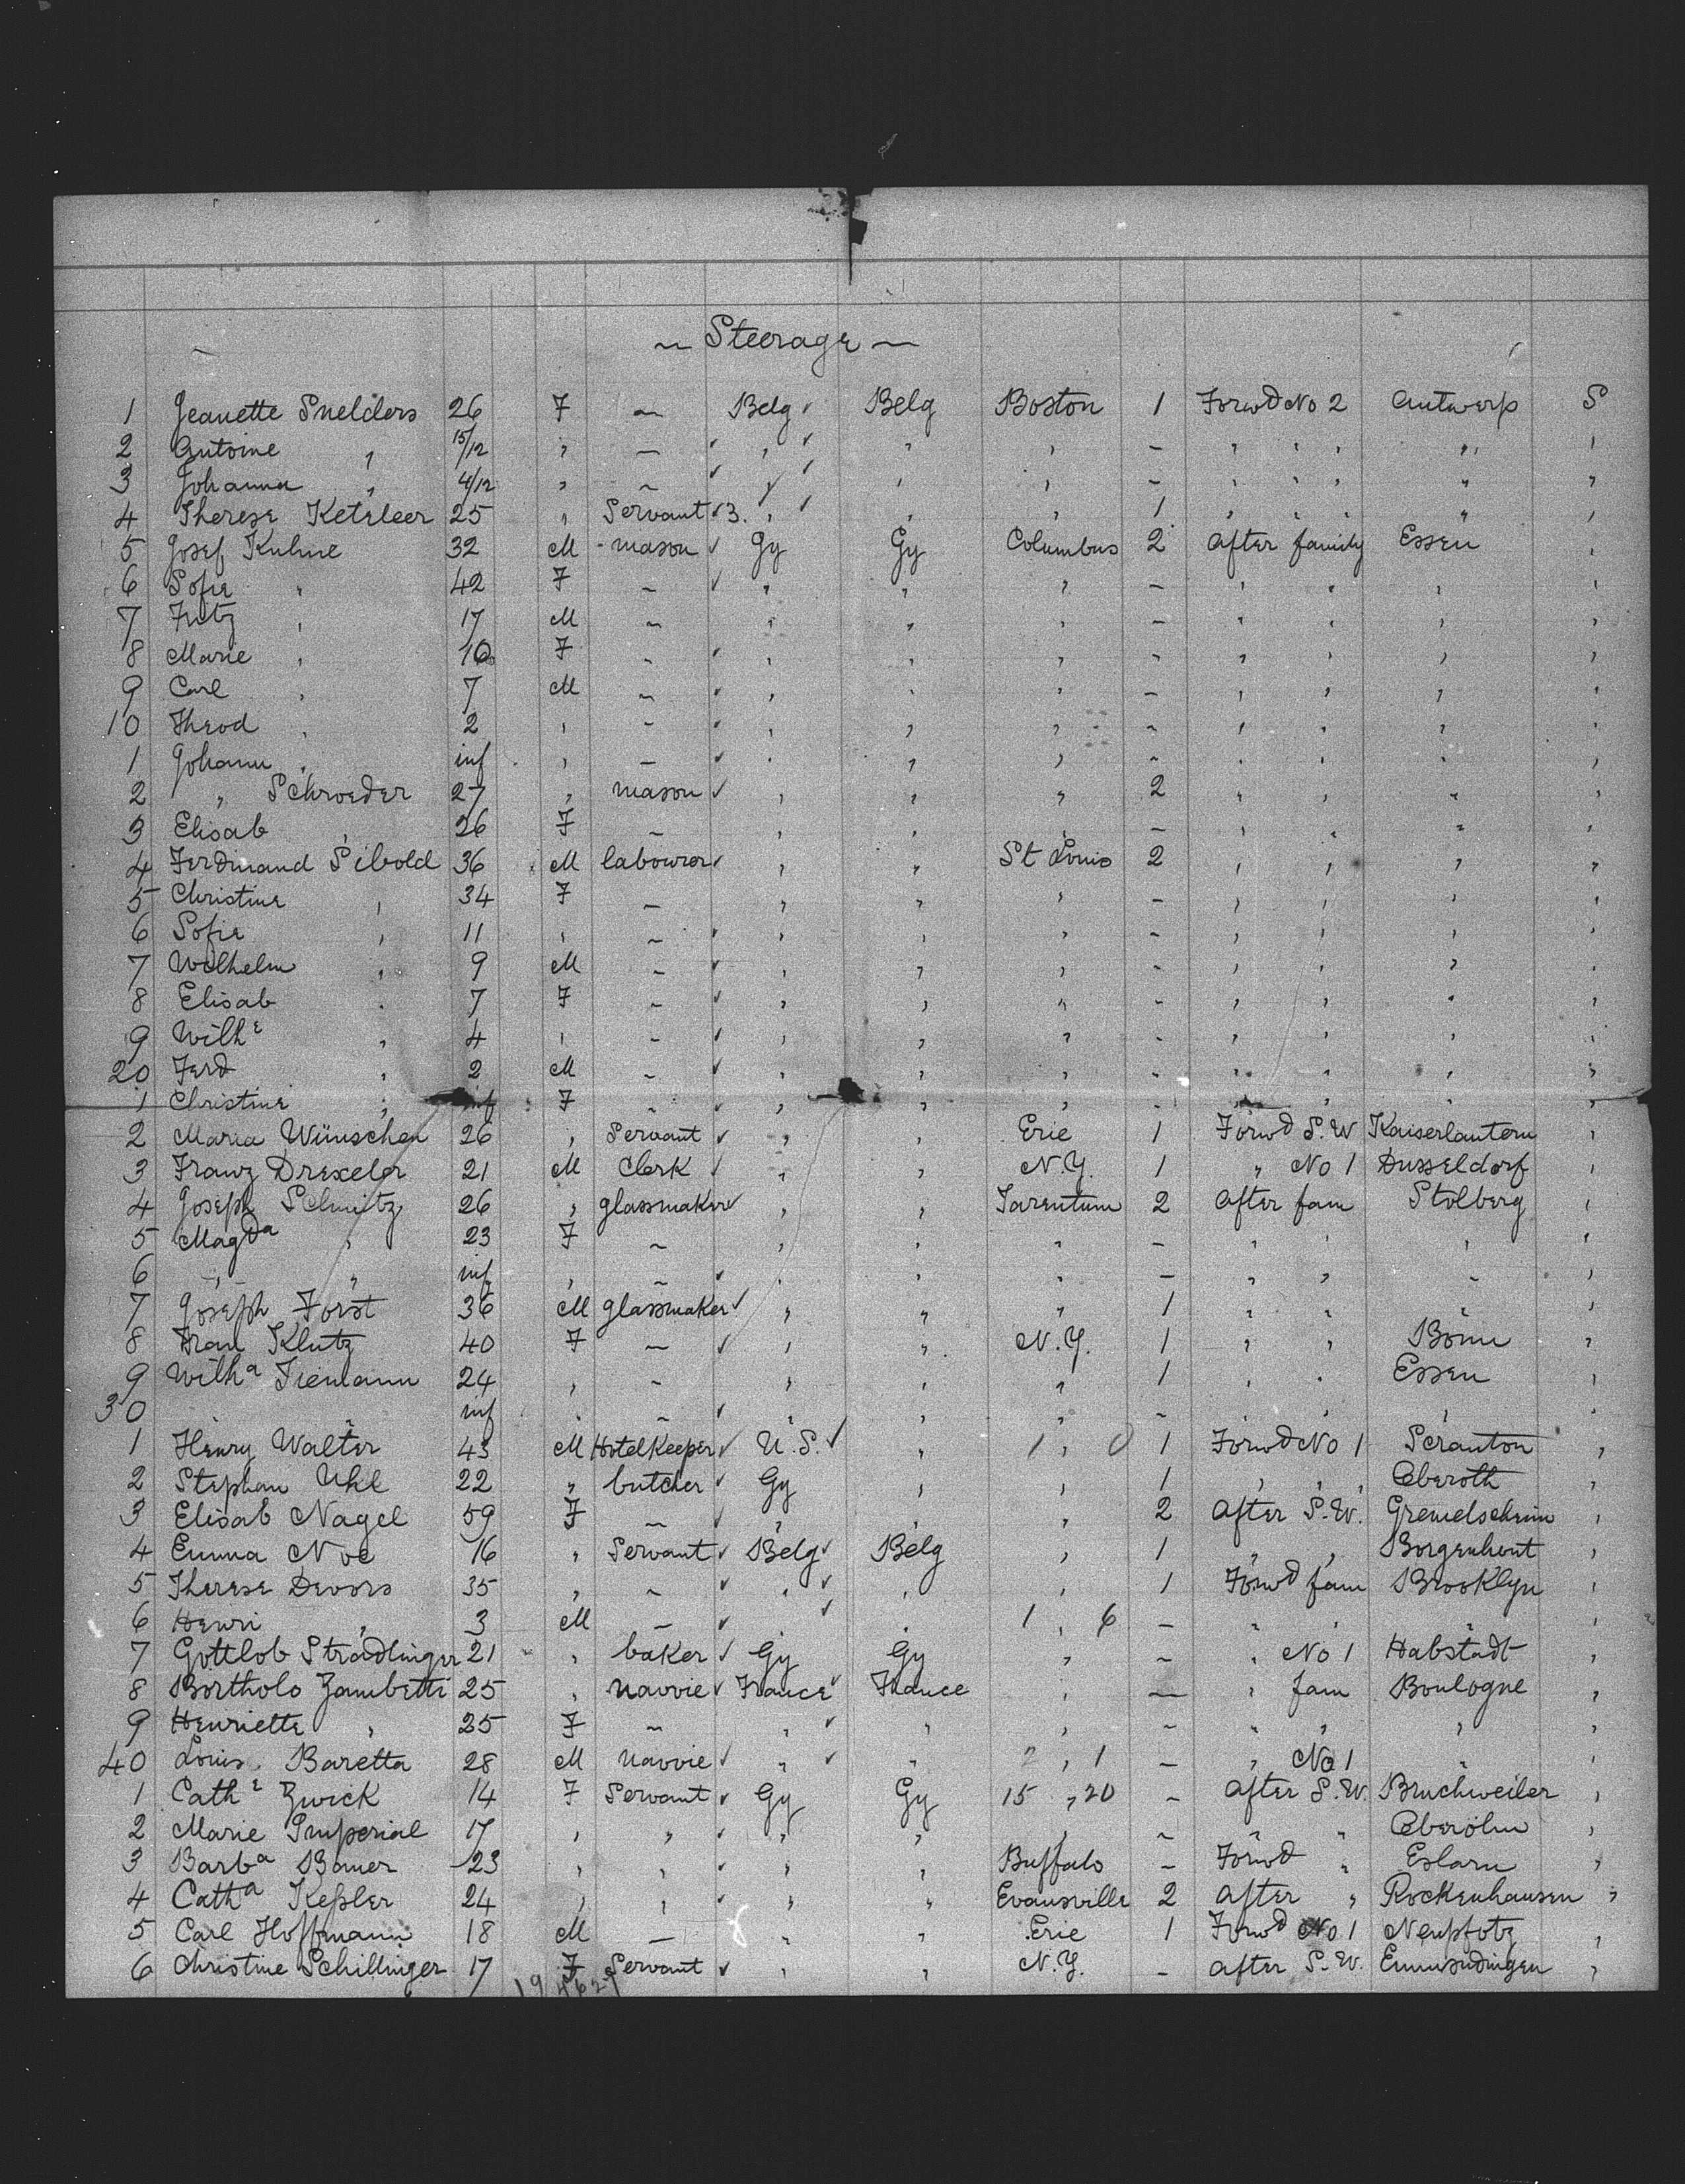 ~ Steerage ~
1 Jeanette Snelders 26 F ~ Belg Belg Boston 1 Forwd No 2 Antwerp S
2 Antoine " 15/12 " — " " " — " " " " "
3 Johanna " 4/12 " ~ " " " ~ " " " " "
4 Therese Keteleer 25 " Servant 3. " " " 1 " " " " "
5 Josef Kuhne 32 M mason Gy Gy Columbus 2 After family Essen "
6 Sofie " 42 F ~ " " " — " " " "
7 Fritz " 17 M ~ " " " — " " " "
8 Marie " 10 F ~ " " " ~ " " " "
9 Carl " 7 M ~ " " " — " " " "
10 Theod " 2 " ~ " " " ~ " " " "
1 Johann " inf " — " " " ~ " " " "
2 " Schroeder 27 " mason " " " 2 " " " "
3 Elisab " 26 F ~ " " " — " " " "
4 Ferdinand Sibold 36 M labourer " " St Louis 2 " " " "
5 Christine " 34 F — " " " — " " " "
6 Sofie " 11 " ~ " " " — " " " "
7 Wilhelm " 9 M ~ " " " ~ " " " "
8 Elisab " 7 F ~ " " " ~ " " " "
9 Wilhe " 4 " ~ " " " ~ " " " "
20 Ferd " 2 M ~ " " " ~ " " " "
1 Christine " inf F ~ " " " ~ " " " "
2 Maria Wünschen 26 " Servant " " Erie 1 Forwd S.W Kaiserlautern "
3 Franz Drexeler 21 M Clerk " " N.Y. 1 " No 1 Dusseldorf "
4 Joseph Schmitz 26 " glassmaker " " Tarentum 2 After fam Stolberg "
5 Magda " 23 F ~ " " " — " " " "
6 " " inf " ~ " " " — " " " "
7 Joseph Forst 36 M glassmaker " " " 1 " " " "
8 Frau Klutz 40 F — " " N.Y. 1 " " Bonn "
9 Wilha Tiemann 24 " ~ " " " 1 " " Essen "
30 " " inf " ~ " " " ~ " " " "
1 Henry Walter 43 M Hotelkeeper U.S. " 1 " 0 1 Forwd No 1 Scranton "
2 Stephan Uhl 22 " butcher Gy " " 1 " " " Oberoth "
3 Elisab Nagel 59 F ~ " " " 2 After S.W. "
4 Emma Noe 16 " Servant Belg Belg " 1 " " Borgenhout "
5 Therese Devors 35 " ~ " " " 1 Forwd fam Brooklyn "
6 Henri " 3 M — " " 1 " 6 — " " " "
7 Gottlob Stradlinger 21 " baker Gy Gy " ~ " No 1 Habstadt "
8 Bortholo Zambetti 25 " Navvie France France " — " fam Boulogne "
9 Henriette " 25 F ~ " " " ~ " " " "
40 Louis Baretta 28 M Navvie " " 2 " 1 — " No 1 " "
1 Cathe Zwick 14 F Servant Gy Gy 15 " 20 ~ After S.W. Bruchweiler "
2 Marie Imperial 17 " " " " " ~ " " Oberölm "
3 Barba Bauer 23 " " " " Buffalo — Forwd " Eslarn "
4 Catha Kessler 24 " " " " Evansville 2 After " Rockenhausen "
5 Carl Hoffmann 18 M — " " Erie 1 Forwd No 1 Neupfotz "
6 Christine Schillinger 17 F Servant " " N.Y. — After S.W. Emmendingen "